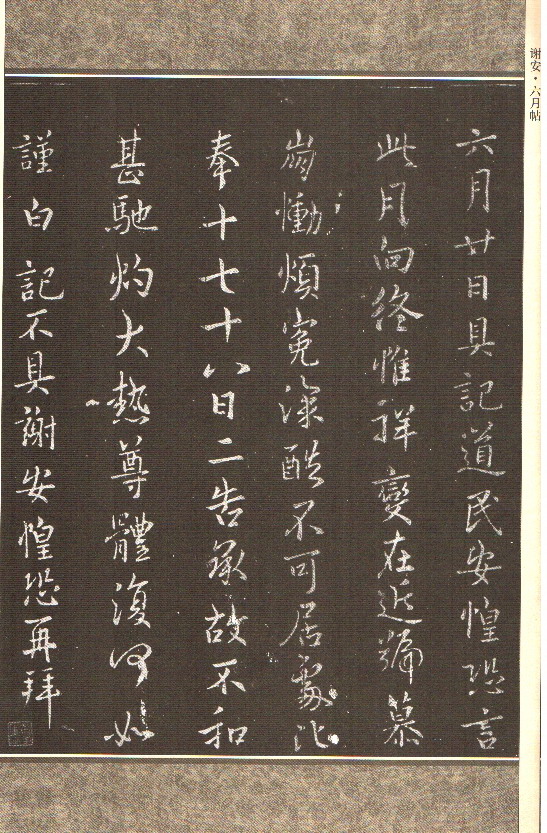 谢安·六月帖
六月廿日具記道民安惶恐言
此月向終惟祥變在近號慕
崩慟煩冤深酷不可居處比
奉十七十八日二告承故不和
甚馳灼大熱尊體復何如
謹白記不具謝安惶恐再拜